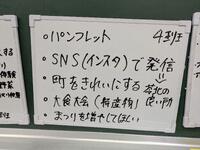 ・パンフレット 4班
・SNS(インスタ)で発信
・町をきれいにする
・大食大会(特産物)
・まつりを増やしてほしい
する